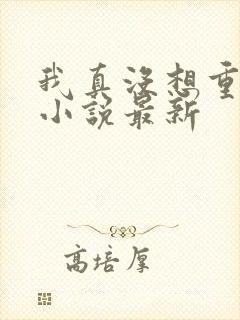 我真没想重
小说最新
高培厚